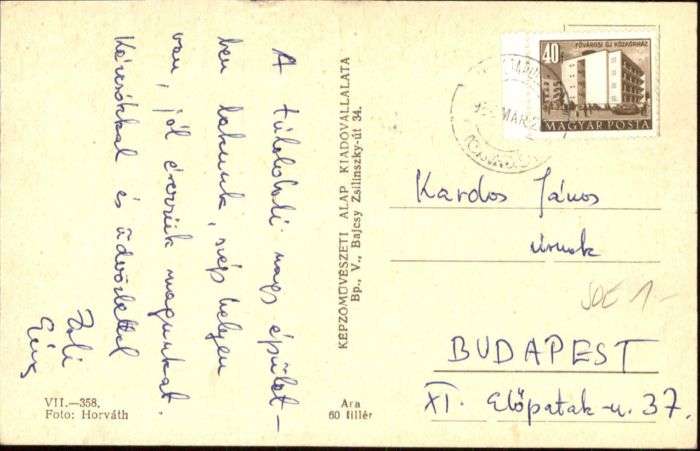 A túloldali nagy épület-
ben lakunk, szép helyen
van, jól érezzük magunkat.
Kézcsókkal és üdvözlettel
Zoli
Éva
VII.—358.
Foto: Horváth
KÉPZŐMŰVÉSZETI ALAP KIADÓVÁLLALATA
Bp., V., Bajcsy Zsilinszky-út 34.
Ara
60 fillér
40f
FŐVÁROSI ÚJ KÖZKÓRHÁZ
MAGYAR POSTA
MAR 2
Kardos János
úrnak
BUDAPEST
XI. Előpatak-u. 37.